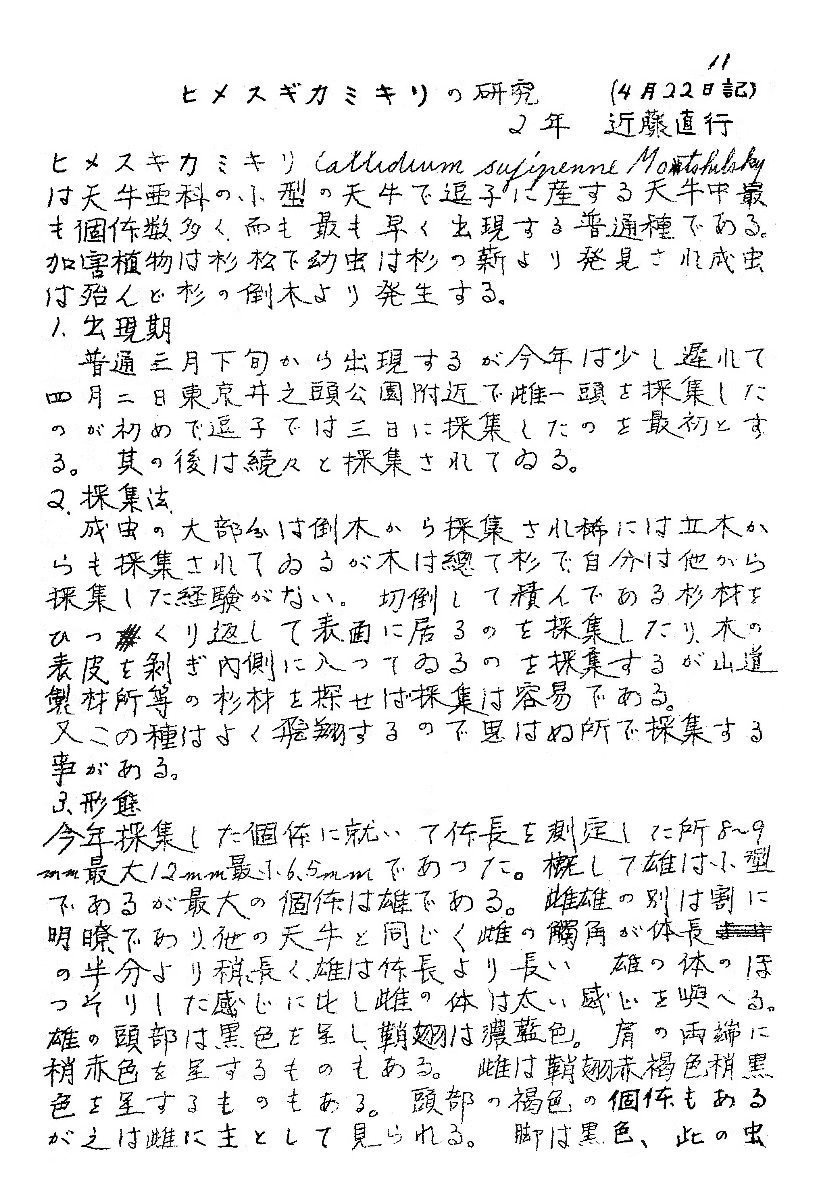 11
ヒメスギカミキリの研究 (4月22日記)
2年 近藤直行
ヒメスギカミキリ Callidium sufipenne Motshulsky
は天牛亜科の小型の天牛で逗子に産する天牛中最
も個体数多く、而も最も早く出現する普通種である。
加害植物は杉松で幼虫は杉の薪より発見され成虫
は殆んど杉の倒木より発生する。
1. 出現期
普通三月下旬から出現するが今年は少し遅れて
四月二日東京井之頭公園附近で雌一頭を採集した
のが初めで逗子では三日に採集したのを最初とす
る。 其の後は続々と採集されてゐる。
2. 採集法
成虫の大部分は倒木から採集され稀には立木か
らも採集されてゐるが木は總て杉で自分は他から
採集した経験がない。 切倒して積んである杉材を
ひっくり返して表面に居るのを採集したり、木の
表皮を剥ぎ内側に入つてゐるのを採集するが山道
製材所等の杉材を探せば採集は容易である。
又この種はよく飛翔するので思はぬ所で採集する
事がある。
3. 形態
今年採集した個体に就いて体長を測定した所8~9
mm最大12mm最小6.5mmであつた。概して雄は小型
であるが最大の個体は雄である。 雌雄の別は割に
明瞭であり、他の天牛と同じく雌の觸角が体長
の半分より稍、長く、雄は体長より長い 雄の体のほ
つそりした感じに比し雌の体は太い感じを與へる。
雄の頭部は黒色を呈し、鞘翅は濃藍色。 肩の両端に
稍赤色を呈するものもある。 雌は鞘翅赤褐色稍黒
色を呈するものもある。 頭部の褐色の個体もある
が之は雌に主として見られる。 脚は黒色、此の虫